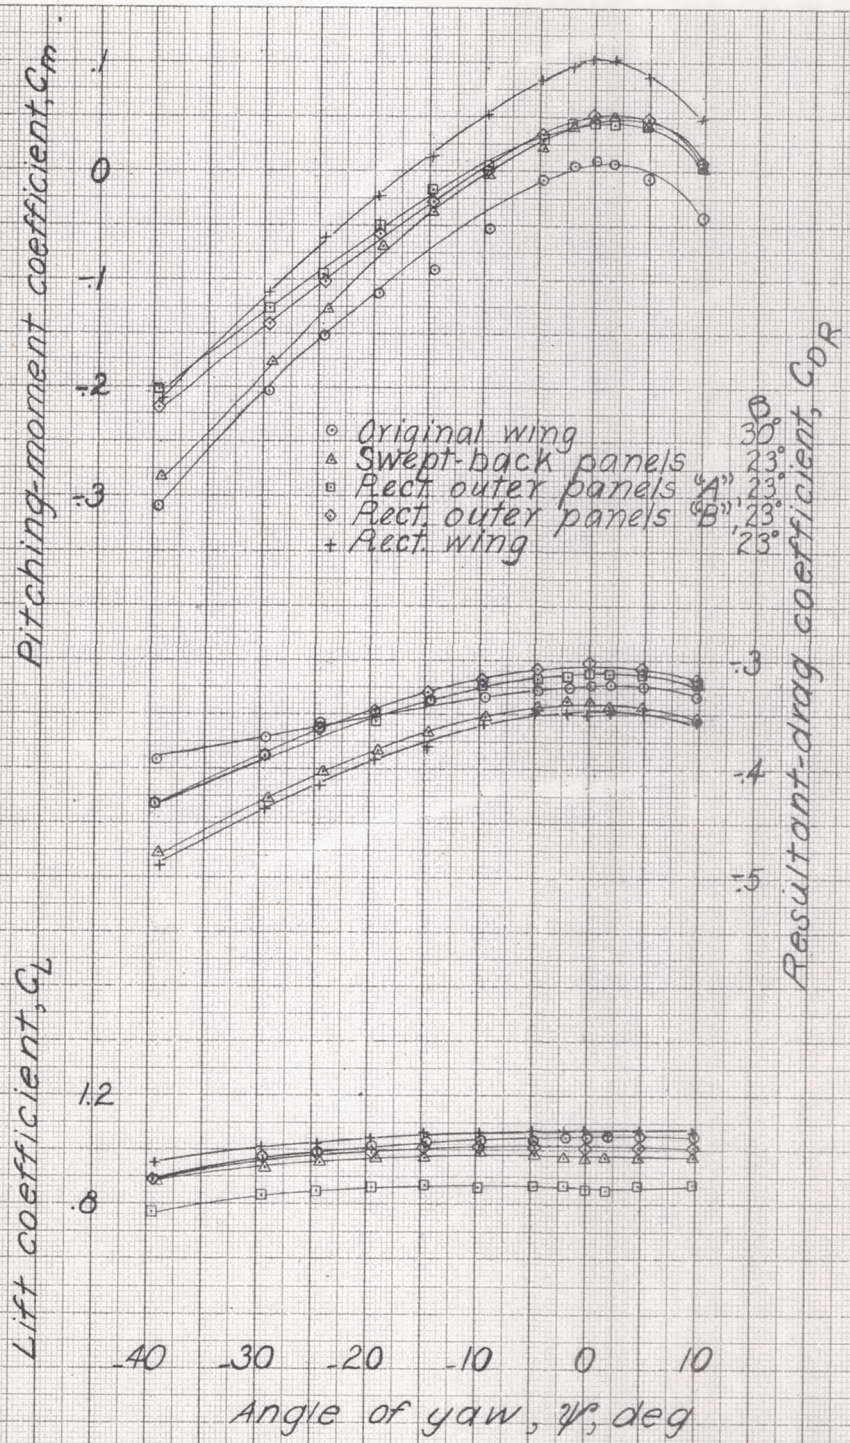 Pitching-moment coefficient, Cm
.1
0
-.1
-.2
-.3
β
Original wing 30°
Swept-back panels 23°
Rect. outer panels "A", 23°
Rect. outer panels "B", 23°
Rect. wing 23°
Resultant-drag coefficient, CDR
-.3
-.4
-.5
Lift coefficient, CL
1.2
.8
-40 -30 -20 -10 0 10
Angle of yaw, ψ, deg